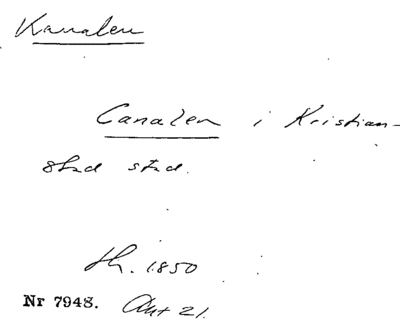 Kanalen
Canalen i Kristian-
stad stad.
1850
Nr 7948. Akt 21.